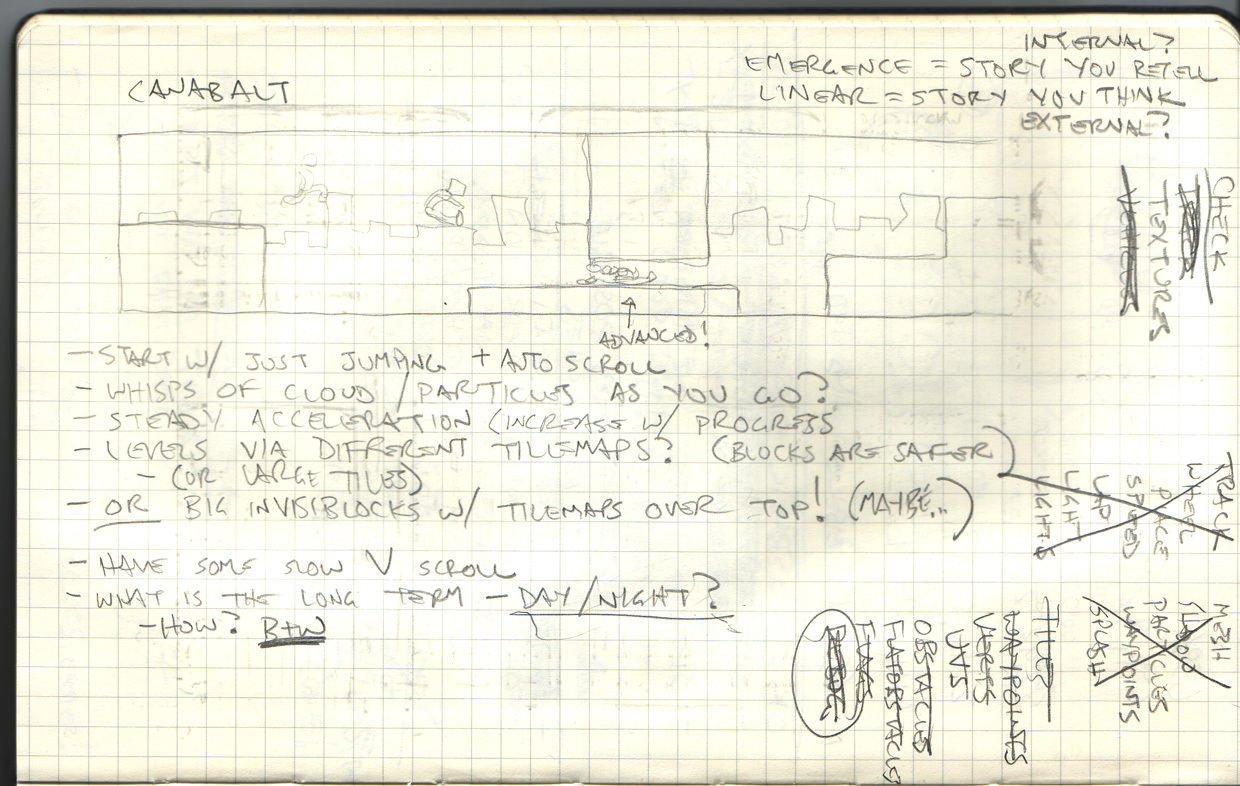 INTERNAL?
EMERGENCE = STORY YOU RETELL
LINEAR = STORY YOU THINK
EXTERNAL?
CANABALT
ADVANCED!
- START W/ JUST JUMPING + AUTO SCROLL
- WHISPS OF CLOUD / PARTICLES AS YOU GO?
- STEADY ACCELERATION (INCREASE W/ PROGRESS
- LEVELS VIA DIFFERENT TILEMAPS? (BLOCKS ARE SAFER)
- (OR LARGE TILES)
- OR BIG INVISIBLOCKS W/ TILEMAPS OVER TOP! (MAYBE...)
- HAVE SOME SLOW V SCROLL
- WHAT IS THE LONG TERM - DAY/NIGHT?
- HOW? B+W
CHECK
TEXTURES
VEHICLES
TRACK
WHEEL
PLACE
SPEED
LAP
LIGHT
LIGHTS
MESH
FLUID
PARTICLES
WAYPOINTS
SPLASH
TILES
WAYPOINTS
VERTS
UVS
OBSTACLES
FLATOBSTACLES